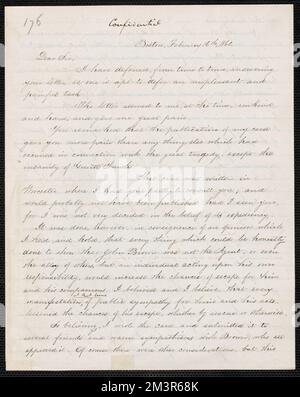 176
Confidential
Boston, February 16th, 1860
Dear Sir,
I have deferred, from time to time, answering
your letter as one is apt to defer an unpleasant and
painful task.
The letter seemed to me, at the time, unkind
and hard, and gave me great pain.
You remarked that the publication of my card
gave you more pain than any thing else which had
occurred in connection with the great tragedy, except the
insanity of Gerritt Smith.
The card was written in
Worcester where I had gone partly to consult you; and
would probably not have been published had I seen you,
for I was not very decided in the belief of its expediency.
It was done, however, in consequence of an opinion which
I held and hold, that every thing which could be honestly
done to show that John Brown was not the Agent, or even
the ally of others, but an individual acting upon his own
responsibility, would increase the chances of escape for him
and his companions. I believed and I believe, that every
manifestation, at that time, of public sympathy for him and his acts,
lessened the chances of his escape, whether by rescue or otherwise.
So believing, I wrote the card and submitted it to
several friends and warm sympathisers with Brown, who all
approved it. Of course there were other considerations, but this
alamy
Image ID: 2M3R68K
www.alamy.com